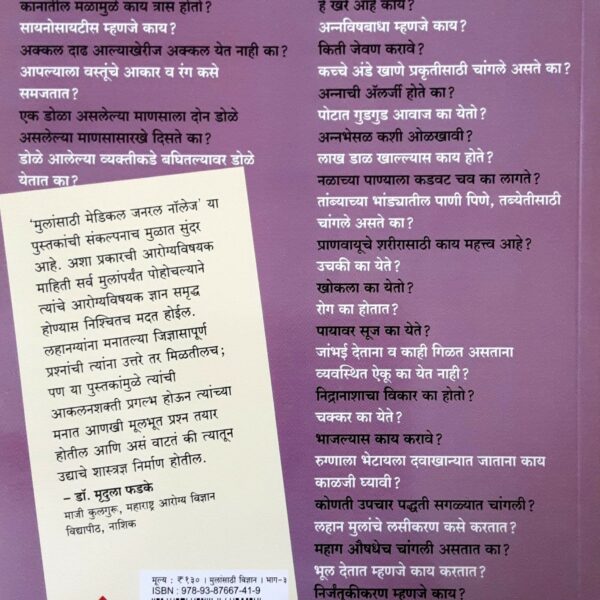 कानातील मळामुळे काय त्रास होतो?
सायनोसायटीस म्हणजे काय?
अक्कल दाढ आल्याखेरीज अक्कल येत नाही का?
आपल्याला वस्तूंचे आकार व रंग कसे
समजतात?
एक डोळा असलेल्या माणसाला दोन डोळे
असलेल्या माणसासारखे दिसते का?
डोळे आलेल्या व्यक्तीकडे बघितल्यावर डोळे
येतात का?
'मुलांसाठी मेडिकल जनरल नॉलेज' या
पुस्तकांची संकल्पनाच मुळात सुंदर
आहे. अशा प्रकारची आरोग्यविषयक
माहिती सर्व मुलांपर्यंत पोहोचल्याने
त्यांचे आरोग्यविषयक ज्ञान समृद्ध
होण्यास निश्चितच मदत होईल.
लहानग्यांना मनातल्या जिज्ञासापूर्ण
प्रश्नांची त्यांना उत्तरे तर मिळतीलच;
पण या पुस्तकांमुळे त्यांची
आकलनशक्ती प्रगल्भ होऊन त्यांच्या
मनात आणखी मूलभूत प्रश्न तयार
होतील आणि असं वाटतं की त्यातून
उद्याचे शास्त्रज्ञ निर्माण होतील.
– डॉ. मृदुला फडके
माजी कुलगुरू, महाराष्ट्र आरोग्य विज्ञान
विद्यापीठ, नाशिक
मूल्य : ₹ १३० । मुलांसाठी विज्ञान । भाग-३
ISBN : 978-93-87667-41-9
हे खरं आहे काय?
अन्नविषबाधा म्हणजे काय?
किती जेवण करावे?
कच्चे अंडे खाणे प्रकृतीसाठी चांगले असते का?
अन्नाची अ‍ॅलर्जी होते का?
पोटात गुडगुड आवाज का येतो?
अन्नभेसळ कशी ओळखावी?
लाख डाळ खाल्ल्यास काय होते?
नळाच्या पाण्याला कडवट चव का लागते?
तांब्याच्या भांड्यातील पाणी पिणे, तब्येतीसाठी
चांगले असते का?
प्राणवायूचे शरीरासाठी काय महत्त्व आहे?
उचकी का येते?
खोकला का येतो?
रोग का होतात?
पायावर सूज का येते?
जांभई देताना व काही गिळत असताना
व्यवस्थित ऐकू का येत नाही?
निद्रानाशाचा विकार का होतो?
चक्कर का येते?
भाजल्यास काय करावे?
रुग्णाला भेटायला दवाखान्यात जाताना काय
काळजी घ्यावी?
कोणती उपचार पद्धती सगळ्यात चांगली?
लहान मुलांचे लसीकरण कसे करतात?
महाग औषधेच चांगली असतात का?
भूल देतात म्हणजे काय करतात?
निर्जंतुकीकरण म्हणजे काय?